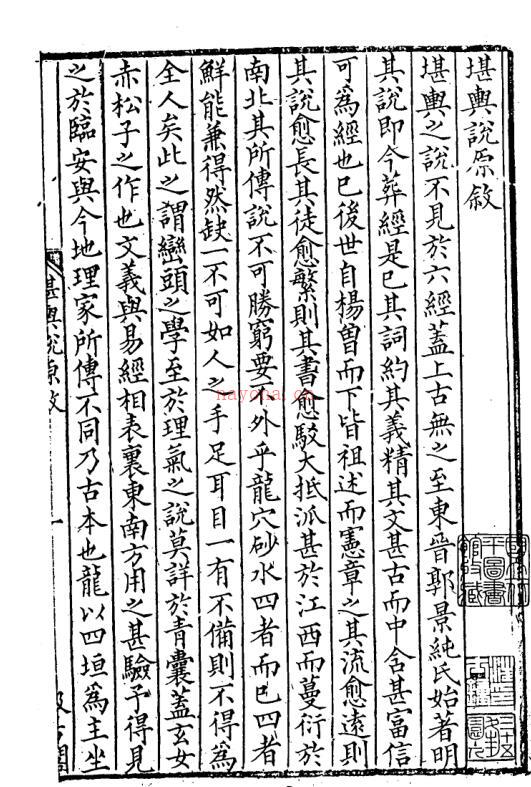 堪輿說原敘
堪輿之說不見於六經蓋上古無之至東晉郭景純氏始著明
其說即今葬經是已其詞約其義精其文甚古而中含甚富信
可為經也已後世自楊曾而下皆祖述而憲章之其流愈遠則
其說愈長其徒愈繁則其書愈駁大抵派甚於江西而蔓衍於
南北其所傳說不可勝窮要不外乎龍穴砂水四者而已四者
鮮能兼得然缺一不可如人之手足耳目一有不備則不得為
全人矣此之謂巒頭之學至於理氣之說莫詳於青囊蓋玄女
赤松子之作也文義與易經相表裏東南方用之甚驗予得見
之於臨安與今地理家所傳不同乃古本也龍以四垣為主坐
堪輿說原敘
一
nayona.cn